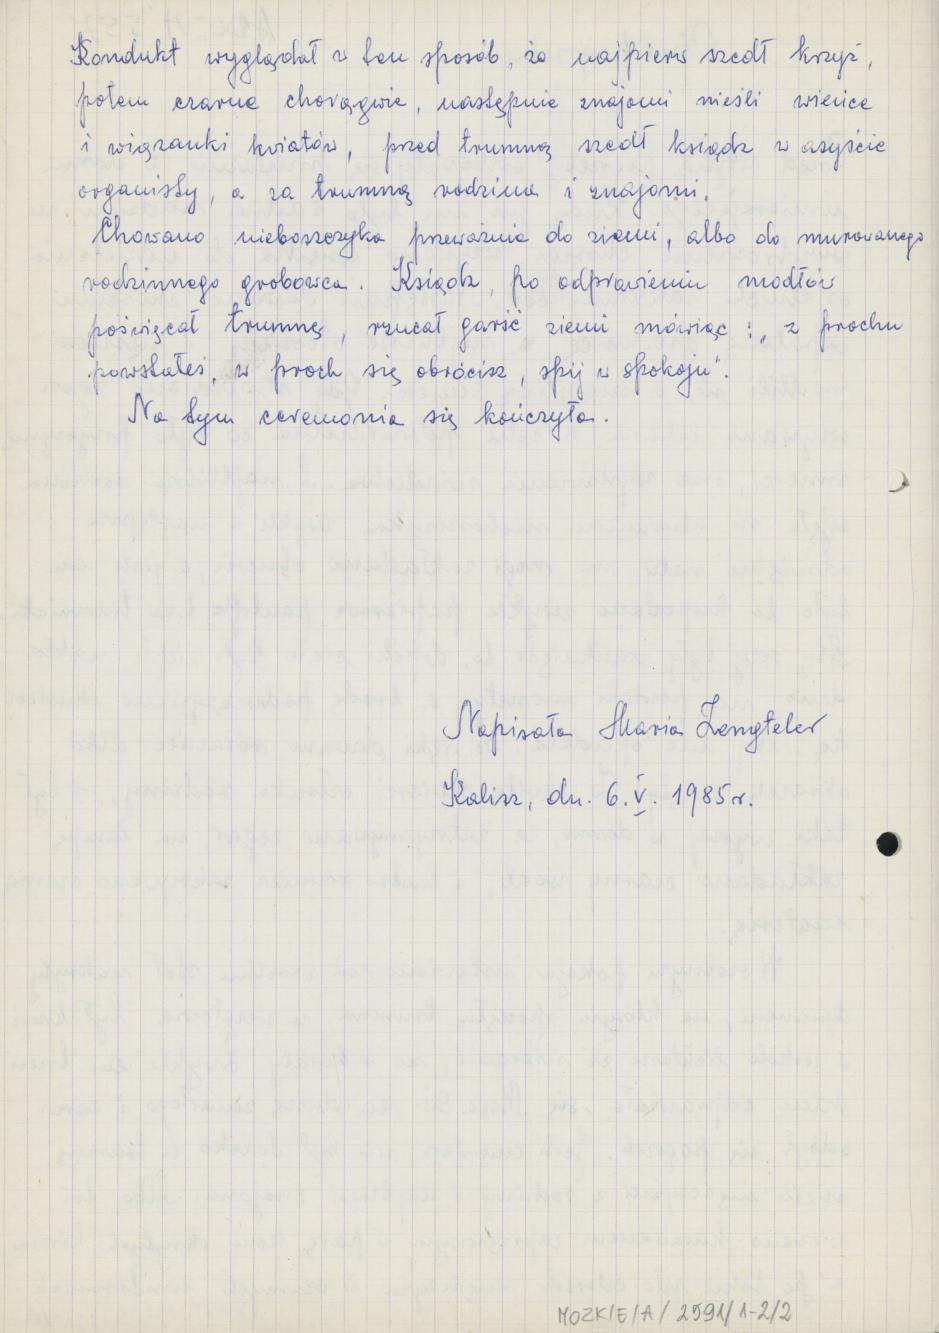 Kondukt wyglądał w ten sposób, że najpierw szedł krzyż,
potem czarne chorągwie, następnie znajomi nieśli wieńce
i wiązanki kwiatów, przed trumną szedł ksiądz w asyście
organisty, a za trumną rodzina i znajomi.
Chowano nieboszczyka przeważnie do ziemi, albo do murowanego
rodzinnego grobowca. Ksiądz, po odprawieniu modłów
poświęcał trumnę, rzucał garść ziemi mówiąc: „z prochu
powstałeś, w proch się obrócisz, śpij w spokoju".
Na tym ceremonia się kończyła.
Napisała Maria Zengteler
Kalisz, dn. 6.V. 1985r.
MOZK/E/A/2591/1-2/2